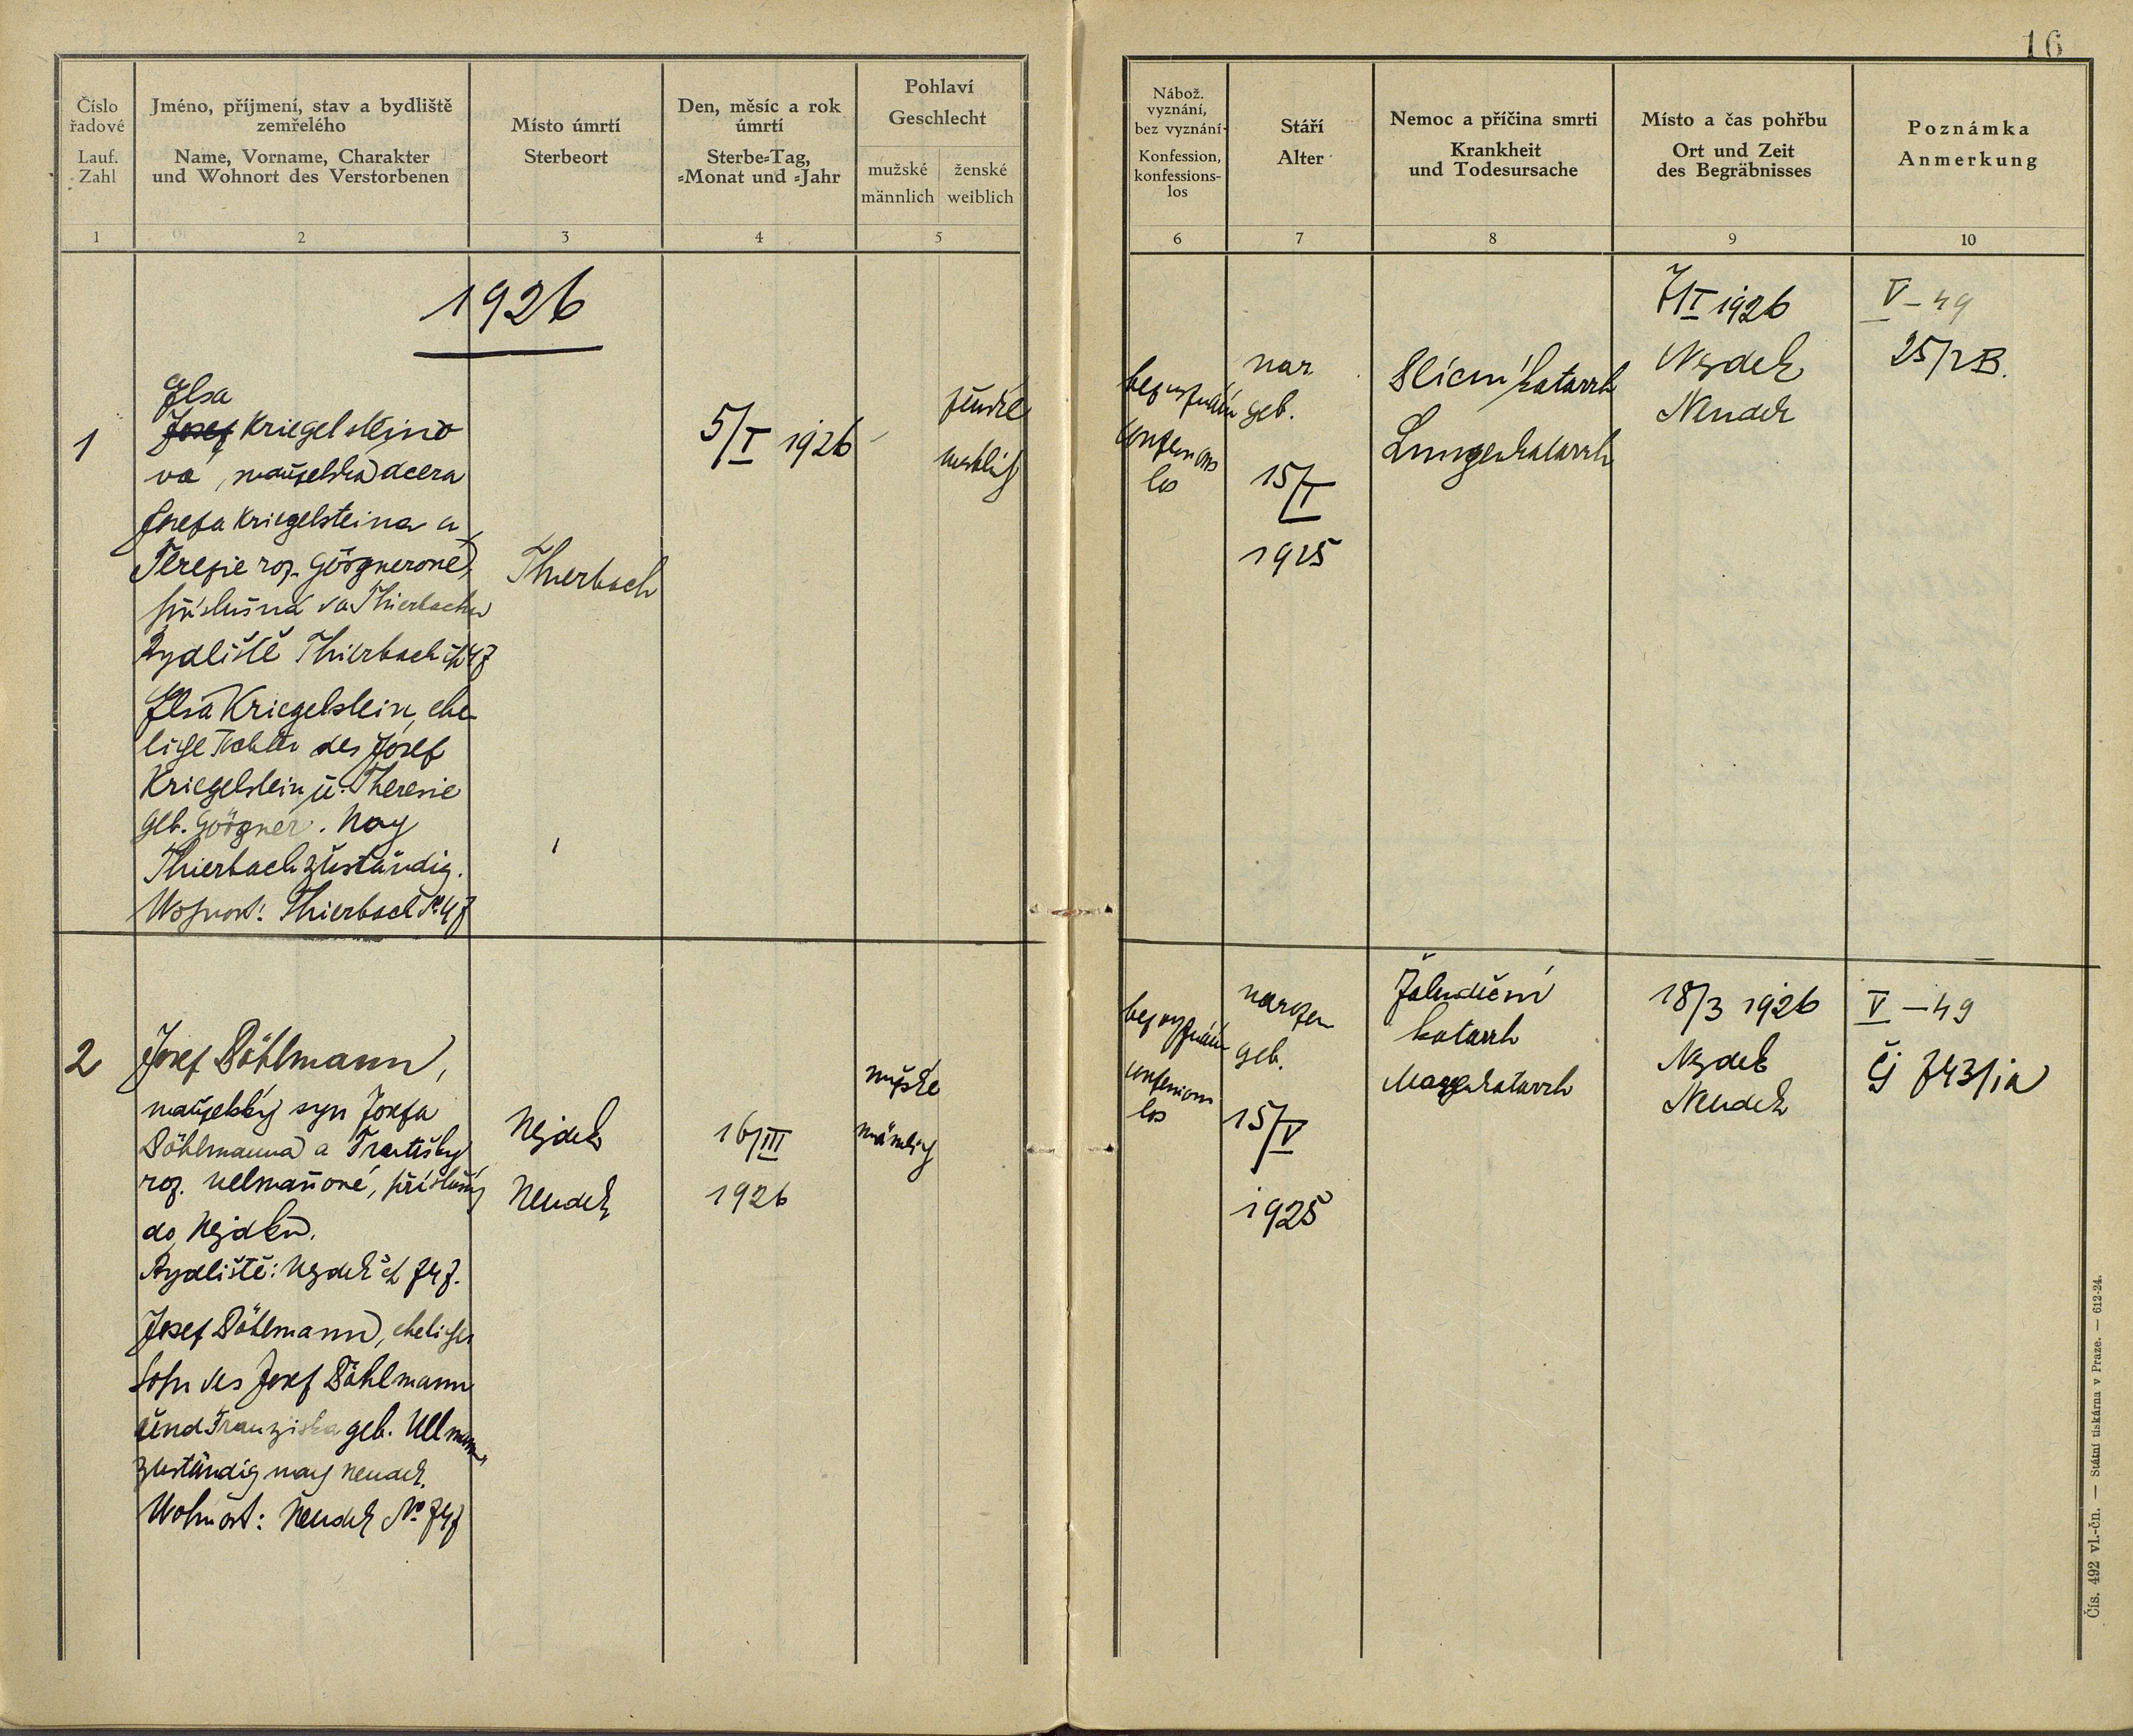 16
Číslo řadové
Lauf. Zahl
Jméno, příjmení, stav a bydliště
zemřelého
Name, Vorname, Charakter
und Wohnort des Verstorbenen
Místo úmrtí
Sterbeort
Den, měsíc a rok
úmrtí
Sterbe-Tag,
-Monat und -Jahr
Pohlaví
Geschlecht
mužské
männlich
ženské
weiblich
Nábož.
vyznání,
bez vyznání
Konfession,
konfessions-
los
Stáří
Alter
Nemoc a příčina smrti
Krankheit
und Todesursache
Místo a čas pohřbu
Ort und Zeit
des Begräbnisses
Poznámka
Anmerkung
1 2 3 4 5 6 7 8 9 10
1926
1
Ilsa
Josef Kriegelsteino
vá, manželská dcera
Josefa Kriegelsteina a
Terezie roz. Görgnerové,
příslušná do Thierbachu
Bydliště Thierbach čp 47
Ilsa Kriegelstein, ehe-
liche Tochter des Josef
Kriegelstein u. Theresie
geb. Görgner. Nach
Thierbach zuständig.
Wohnort: Thierbach No 47
Thierbach
5/I 1926
ženské
weiblich
bez vyznání
konfessions
los
nar.
geb.
15/I
1925
Plícní katarrh
Lungenkatarrh
7/I 1926
Nejdek
Neudek
V – 49
25/2B.
2
Josef Döhlmann,
manželský syn Josefa
Döhlmanna a Františky
roz. Ullmannové, příslušný
do Nejdku.
Bydliště: Nejdek čp 747.
Josef Döhlmann, ehelicher
Sohn des Josef Döhlmann
und Franziska geb. Ullmann,
zuständig nach Neudek.
Wohnort: Neudek No 747
Nejdek
Neudek
16/III
1926
mužské
männlich
bez vyznání
konfessions
los
narozen
geb.
15/V
1925
Žaludeční
katarrh
Magenkatarrh
18/3 1926
Nejdek
Neudek
V – 49
Čj 743/ia
Čís. 492 vl.-čn. — Státní tiskárna v Praze. — 612-24.